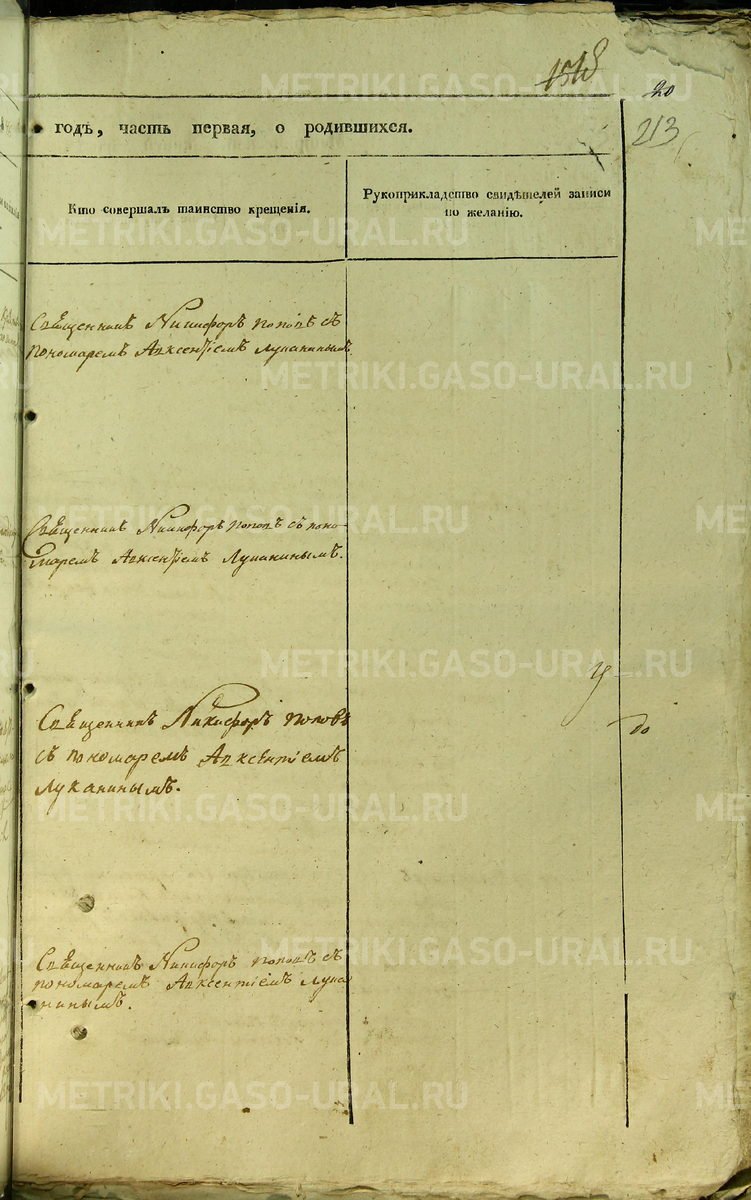 1518
20
213
годъ, часть первая, о родившихся.
Кто совершалъ таинство крещенія.
Рукоприкладство свидѣтелей записи
по желанію.
Священникъ Никифоръ Поповъ съ
пономаремъ Авксентіемъ Луканинымъ.
Священникъ Никифоръ Поповъ съ поно-
маремъ Авксентіемъ Луканинымъ.
Священникъ Никифоръ Поповъ
съ пономаремъ Авксентіемъ
Луканинымъ.
до
Священникъ Никифоръ Поповъ съ
пономаремъ Авксентіемъ Лука
нинымъ.
METRIKI.GASO-URAL.RU